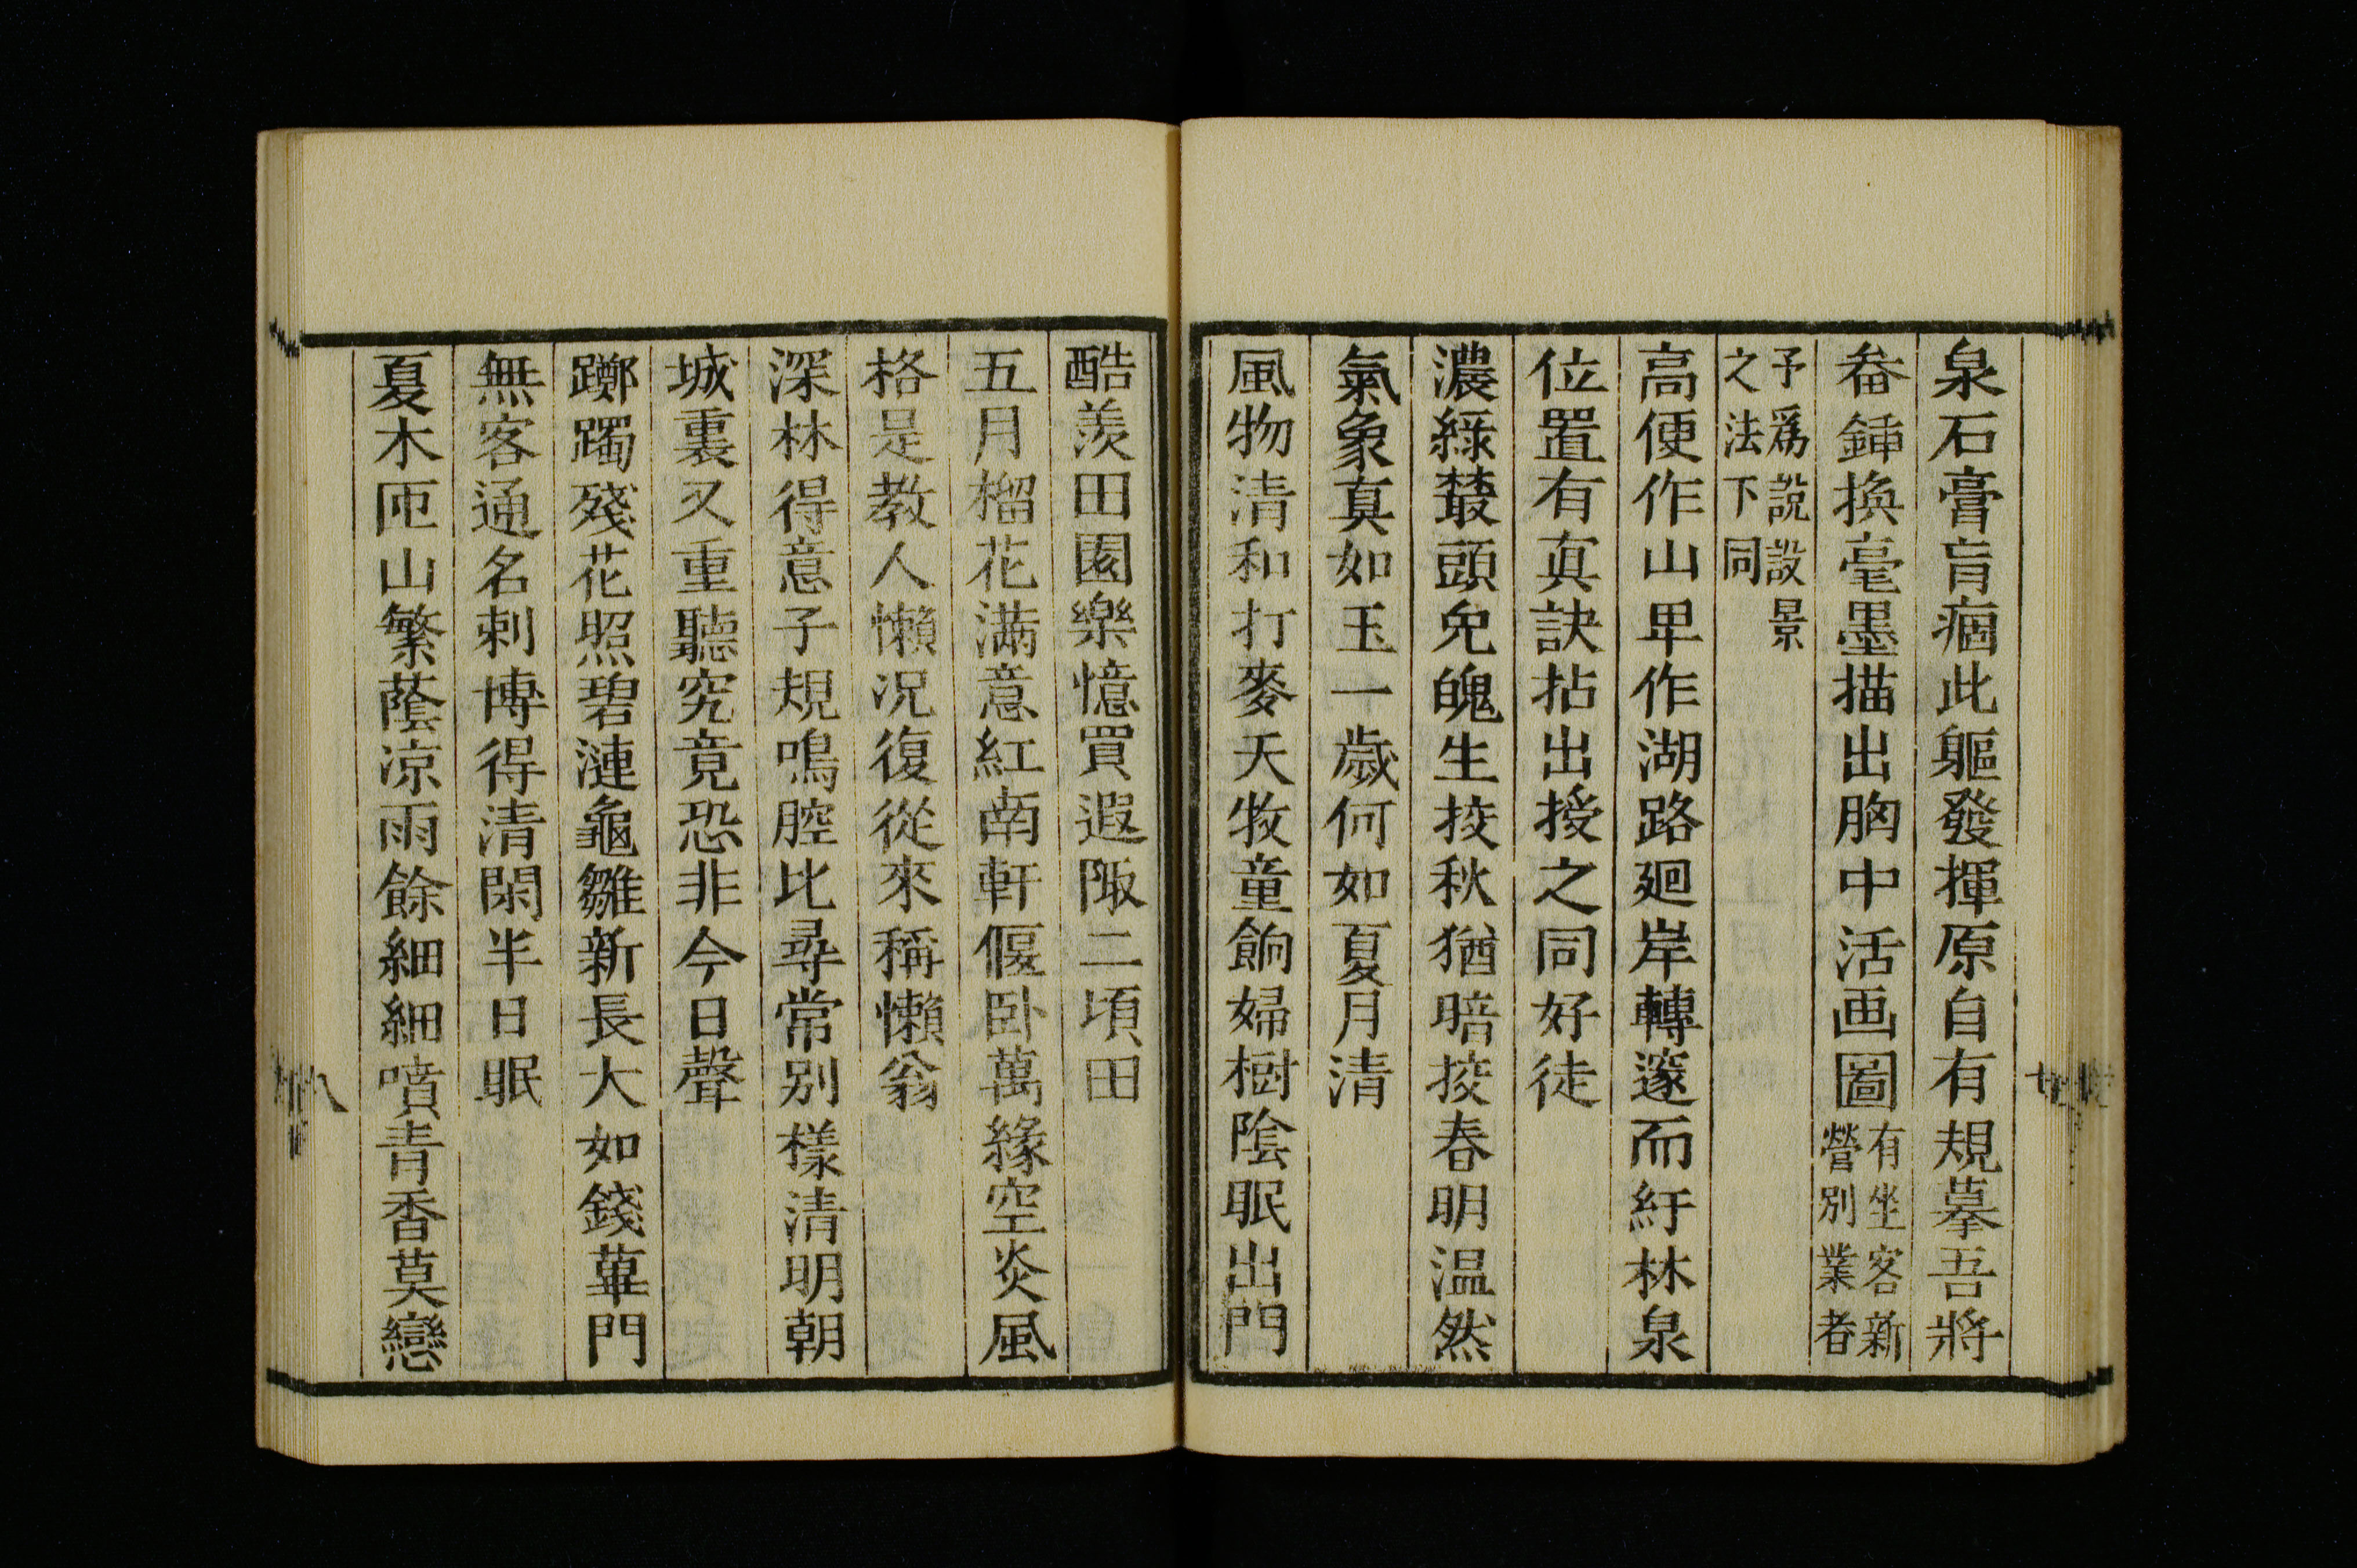 泉石膏肓痼此軀發揮原自有規摹吾將
畚鍤換毫墨描出胸中活画圖有坐客新營別業者
予爲說設景之法下同
高便作山卑作湖路廻岸轉邃而紆林泉
位置有真訣拈出授之同好徒
濃綠藂頭兔魄生挍秋猶暗挍春明温然
氣象真如玉一歲何如夏月清
風物清和打麥天牧童餉婦樹陰眠出門
酷羨田園樂憶買遐陬二頃田
五月榴花満意紅南軒偃卧萬緣空炎風
格是教人懶况復從來稱懶翁
深林得意子規鳴腔比尋常別樣清明朝
城裏又重聽究竟恐非今日聲
躑躅殘花照碧漣龜雛新長大如錢蓽門
無客通名刺博得清閑半日眠
夏木匝山繁蔭凉雨餘細細噴青香莫戀
八